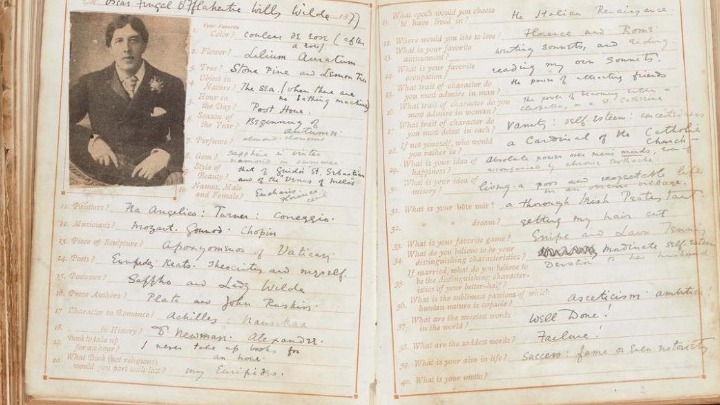 Oscar Fingal O'Flahertie Wills Wilde 1877
1. Your Favorite
Color? couleur de rose (after
a rose)
2. Flower? Lilium Auratum
3. Tree? Stone Pine and Lemon Tree
4. Object in
Nature? The sea. (when there are
no bathing machines
5. Hour in
the Day? Post Hour.
6. Season of
the Year? Beginning of
autumn.
7. Perfume? almond
8. Gem? sapphire in winter
diamond in summer
9. Style of
Beauty? that of Guido's St. Sebastian
and of the Venus of Melos
10. Names, Male
and Female? Eucharis
11. Painters? Fra Angelico: Turner: Correggio.
12. Musicians? Mozart. Gounod. Chopin
13. Piece of Sculpture? Apoxyomenos of Vatican:
14. Poets? Euripides: Keats. Theocritus and myself
15. Poetesses? Sappho and Lady Wilde
16. Prose Authors? Plato and John Ruskin.
17. Character in Romance? Achilles: Nausikaa
18. in History? Dr Newman. Alexander.
19. Book to take up
for an hour? I never take up books for
an hour.
20. What Book (not religious)
would you part with last? my Euripides.
21. What epoch would you choose
to have lived in? the Italian Renaissance.
22. Where would you like to live? Florence and Rome.
23. What is your favorite
amusement? writing sonnets, and reading
24. What is your favorite
occupation? reading my own sonnets.
25. What trait of character do
you most admire in man? the power of attracting friends
26. What trait of character do you
most admire in woman?
27. What trait of character do
you most detest in each? Vanity: self esteem: conceitedness
28. If not yourself, who would
you rather be? a Cardinal of the Catholic
Church
29. What is your idea of
happiness? Absolute power over men's minds, even if
accompanied by chronic toothache
30. What is your idea of
misery? living a poor and respectable life
in an obscure village.
31. What is your bête noire? a thorough Irish Protestant
32. dream? getting my hair cut
33. What is your favorite game? Snipe and Lawn Tennis
34. What do you believe to be your
distinguishing characteristics? inordinate self esteem
35. If married, what do you believe to
be the distinguishing character-
istics of your better-half? Devotion to her husband
36. What is the sublimest passion of which
human nature is capable? Asceticism: ambition!
37. What are the sweetest words
in the world? Well Done!
38. What are the saddest words? Failure!
39. What is your aim in life? Success: fame or even notoriety
40. What is your motto?